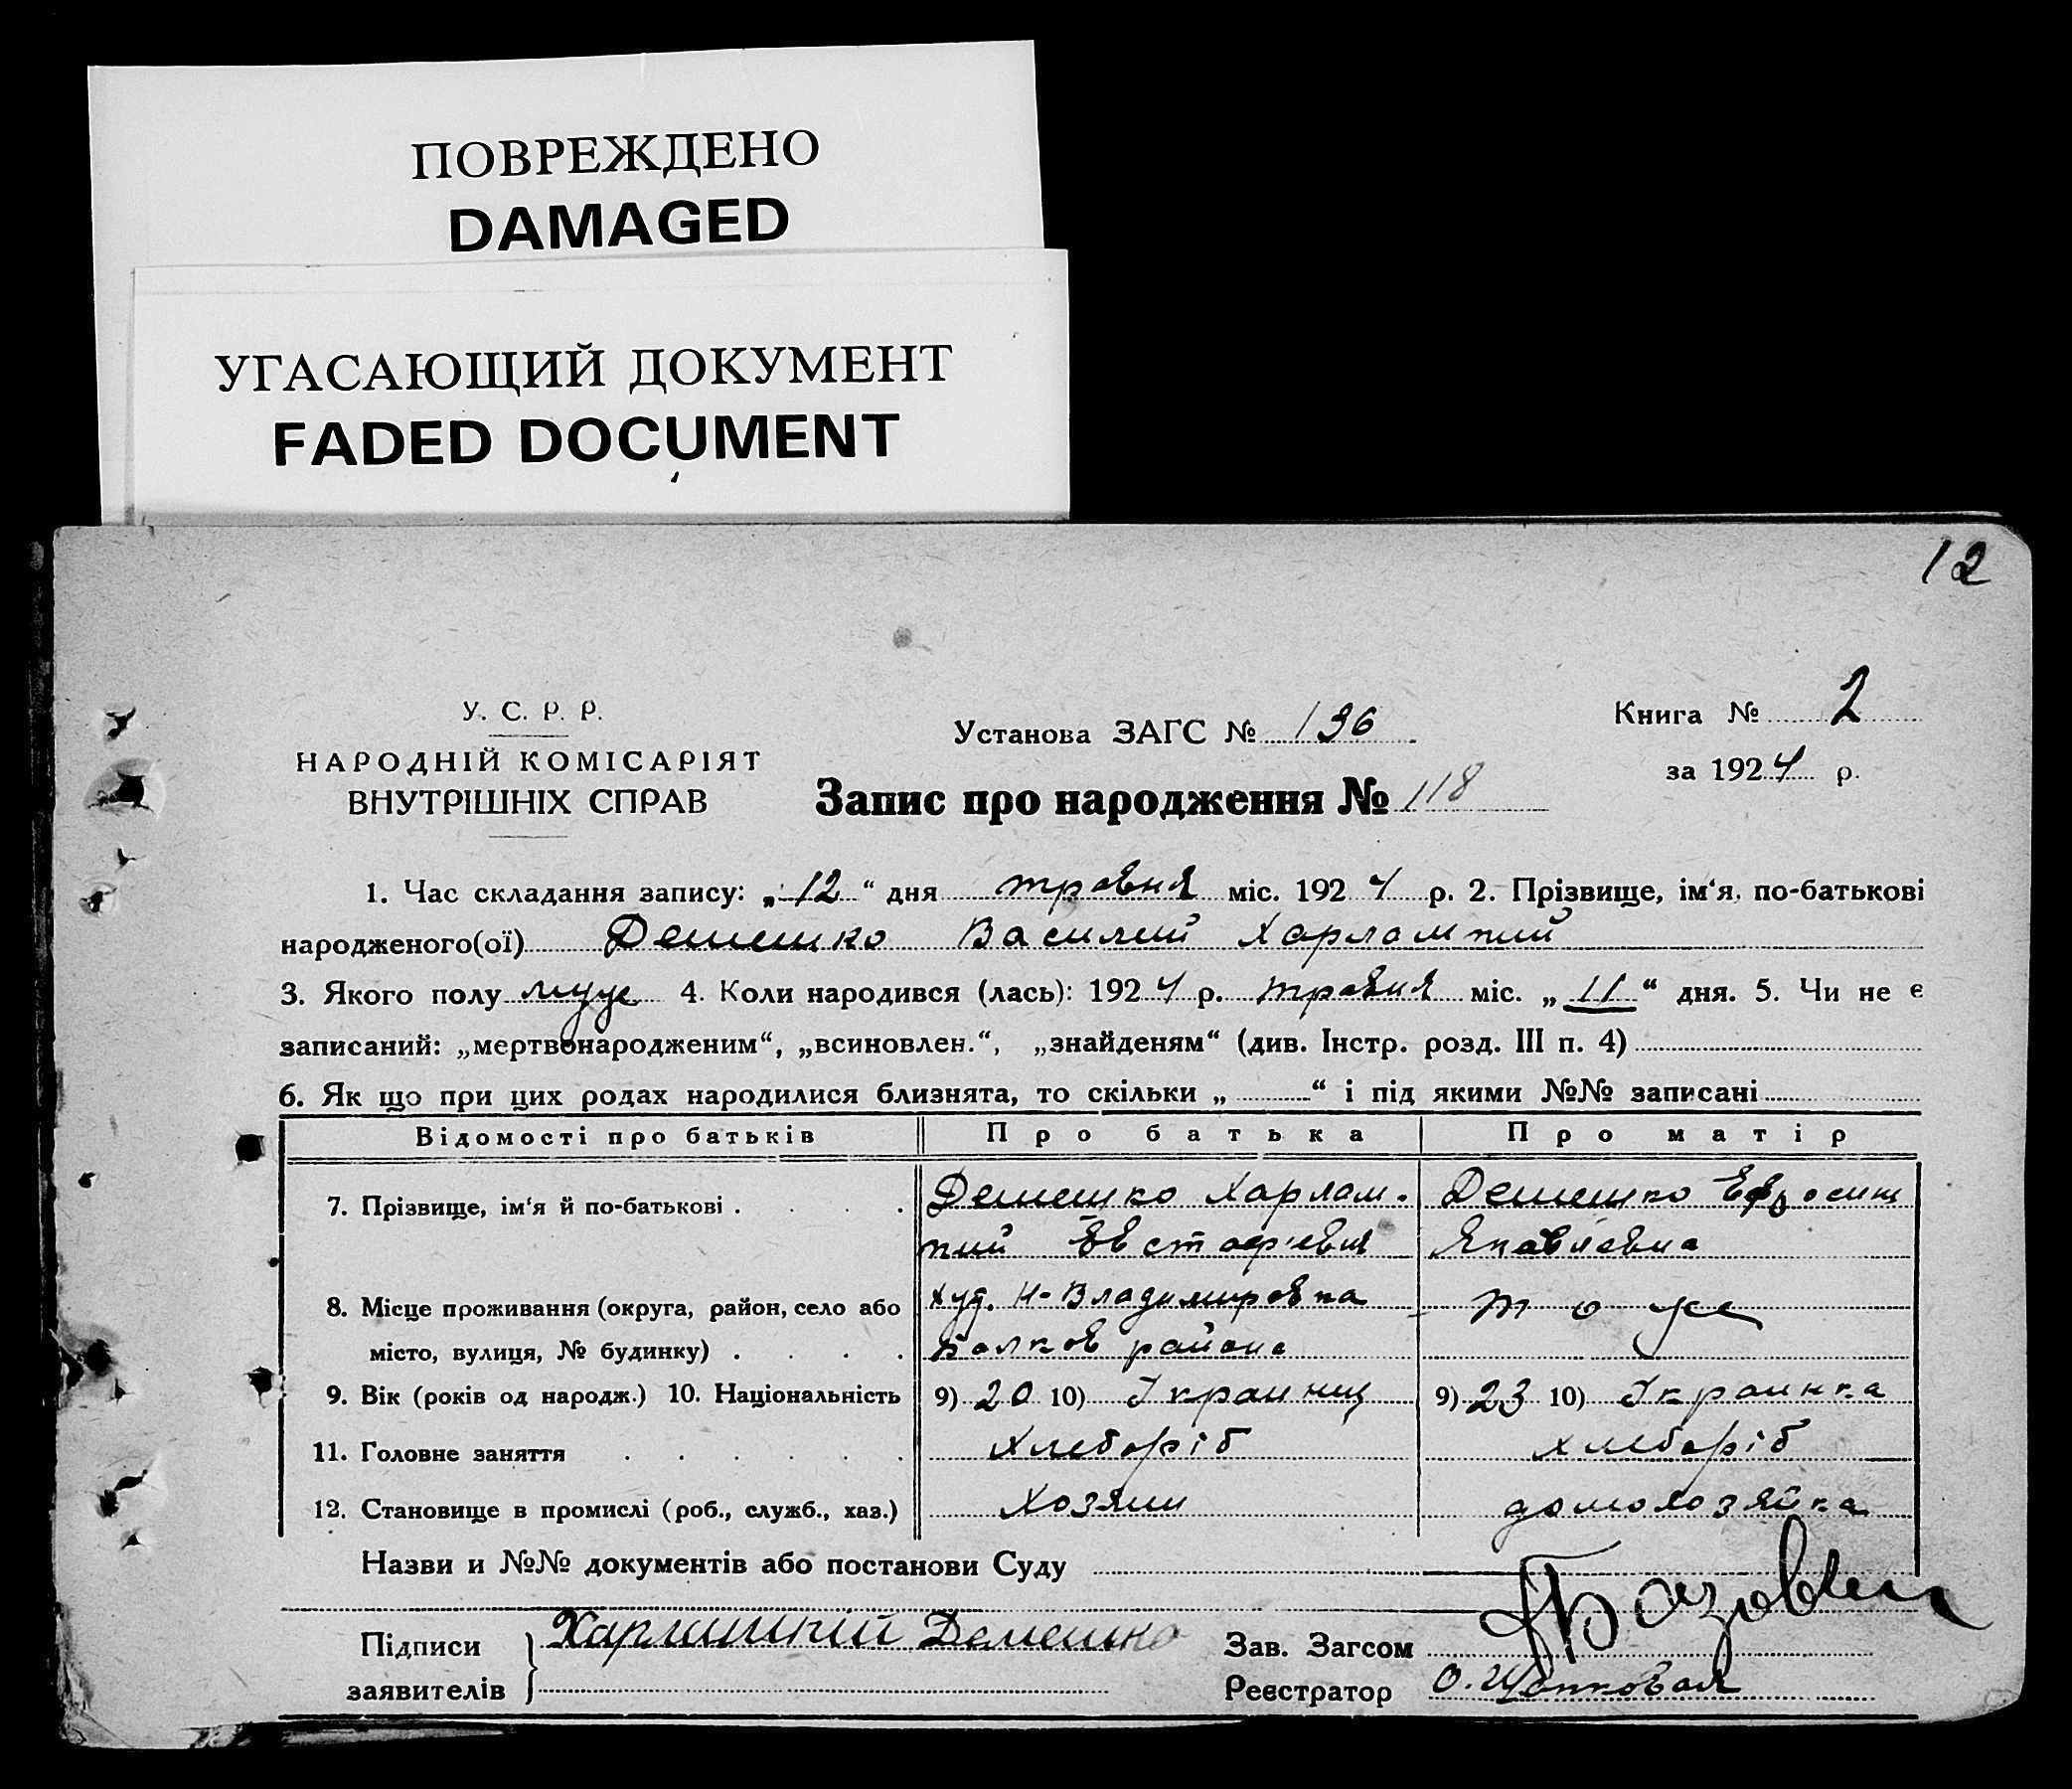 ПОВРЕЖДЕНО
DAMAGED
УГАСАЮЩИЙ ДОКУМЕНТ
FADED DOCUMENT
12
У. С. Р. Р.
НАРОДНІЙ КОМІСАРІЯТ
ВНУТРІШНІХ СПРАВ
Установа ЗАГС № 136
Запис про народження № 118
Книга № 2
за 1924 р.
1. Час складання запису: „12“ дня травня міс. 1924 р. 2. Прізвище, ім‘я, по-батькові
народженого(ої) Демешко Василий Харлампий
3. Якого полу муж 4. Коли народився (лась): 1924 р. травня міс. „11“ дня. 5. Чи не є
записаний: „мертвонародженим“, „всиновлен.“, „знайденям“ (див. Інстр. розд. III п. 4)
6. Як що при цих родах народилися близнята, то скільки „ “ і під якими №№ записані
Відомості про батьків Про батька Про матір
7. Прізвище, ім‘я й по-батькові . . . . Демешко Харлам- Демешко Ефросин
пий Евстафиевич Яковлевна
8. Місце проживання (округа, район, село або Хут. Н-Владимировка тоже
місто, вулиця, № будинку) . . . . района
9. Вік (років од народж.) 10. Національність 9) 20 10) Українец 9) 23 10) Українка
11. Головне заняття . . . . . . Хлеборіб хлеборіб
12. Становище в промислі (роб., служб., хаз.) Хозяин домохозяйка
Назви и №№ документів або постанови Суду
Підписи Харлампий Демешко Зав. Загсом
заявителів Реєстратор О.